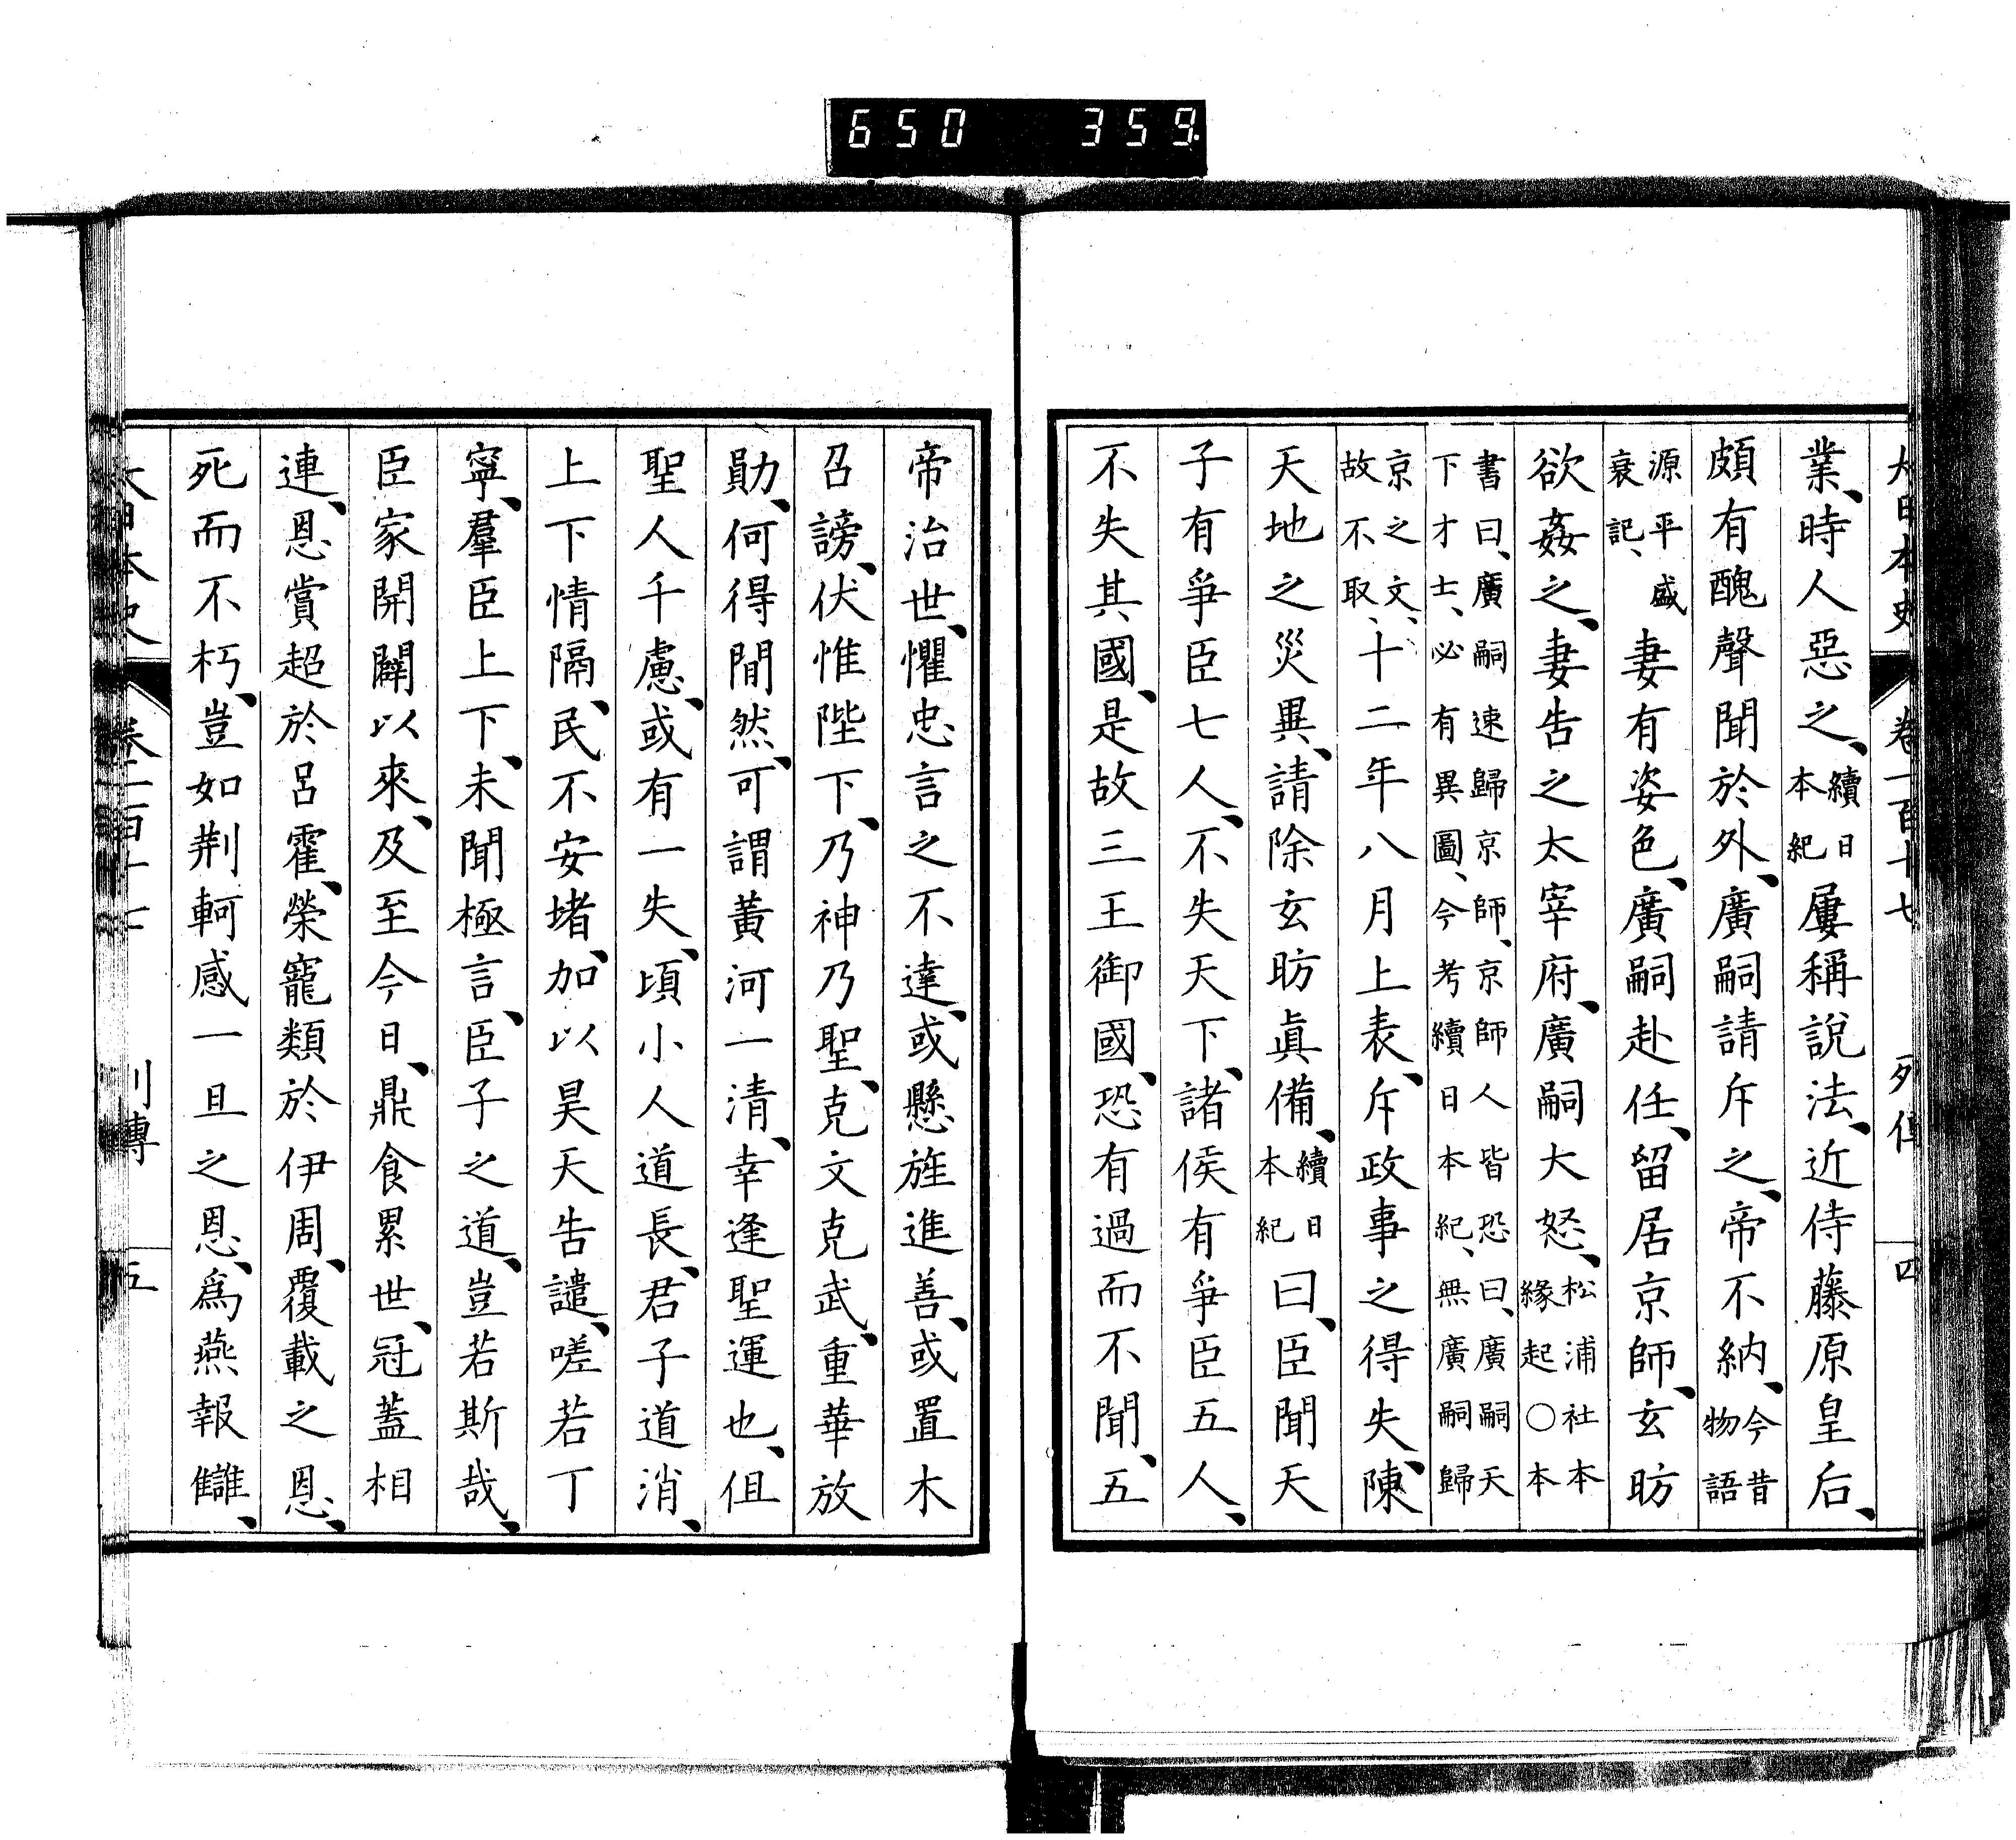 650 359
大日本史 卷一百十七 列傳 四
業、時人惡之、續日本紀屢稱說法、近侍藤原皇后、
頗有醜聲聞於外、廣嗣請斥之、帝不納、今昔物語
源平盛衰記、妻有姿色、廣嗣赴任、留居京師、玄昉
欲姦之、妻告之太宰府、廣嗣大怒、松浦社本緣起○本
書曰、廣嗣速歸京師、京師人皆恐曰、廣嗣天下才士、必有異圖、今考續日本紀、無廣嗣歸
京之文、故不取、十二年八月上表、斥政事之得失、陳
天地之災異、請除玄昉眞備、續日本紀曰、臣聞天
子有爭臣七人、不失天下、諸侯有爭臣五人、
不失其國、是故三王御國、恐有過而不聞、五
帝治世、懼忠言之不達、或懸旌進善、或置木
召謗、伏惟陛下、乃神乃聖、克文克武、重華放
勛、何得間然、可謂黃河一清、幸逢聖運也、但
聖人千慮、或有一失、頃小人道長、君子道消、
上下情隔、民不安堵、加以昊天告譴、嗟若丁
寧、羣臣上下、未聞極言、臣子之道、豈若斯哉、
臣家開闢以來、及至今日、鼎食累世、冠蓋相
連、恩賞超於呂霍、榮寵類於伊周、覆載之恩、
死而不朽、豈如荆軻感一旦之恩、爲燕報讎、
大日本史 卷一百十七 列傳 五